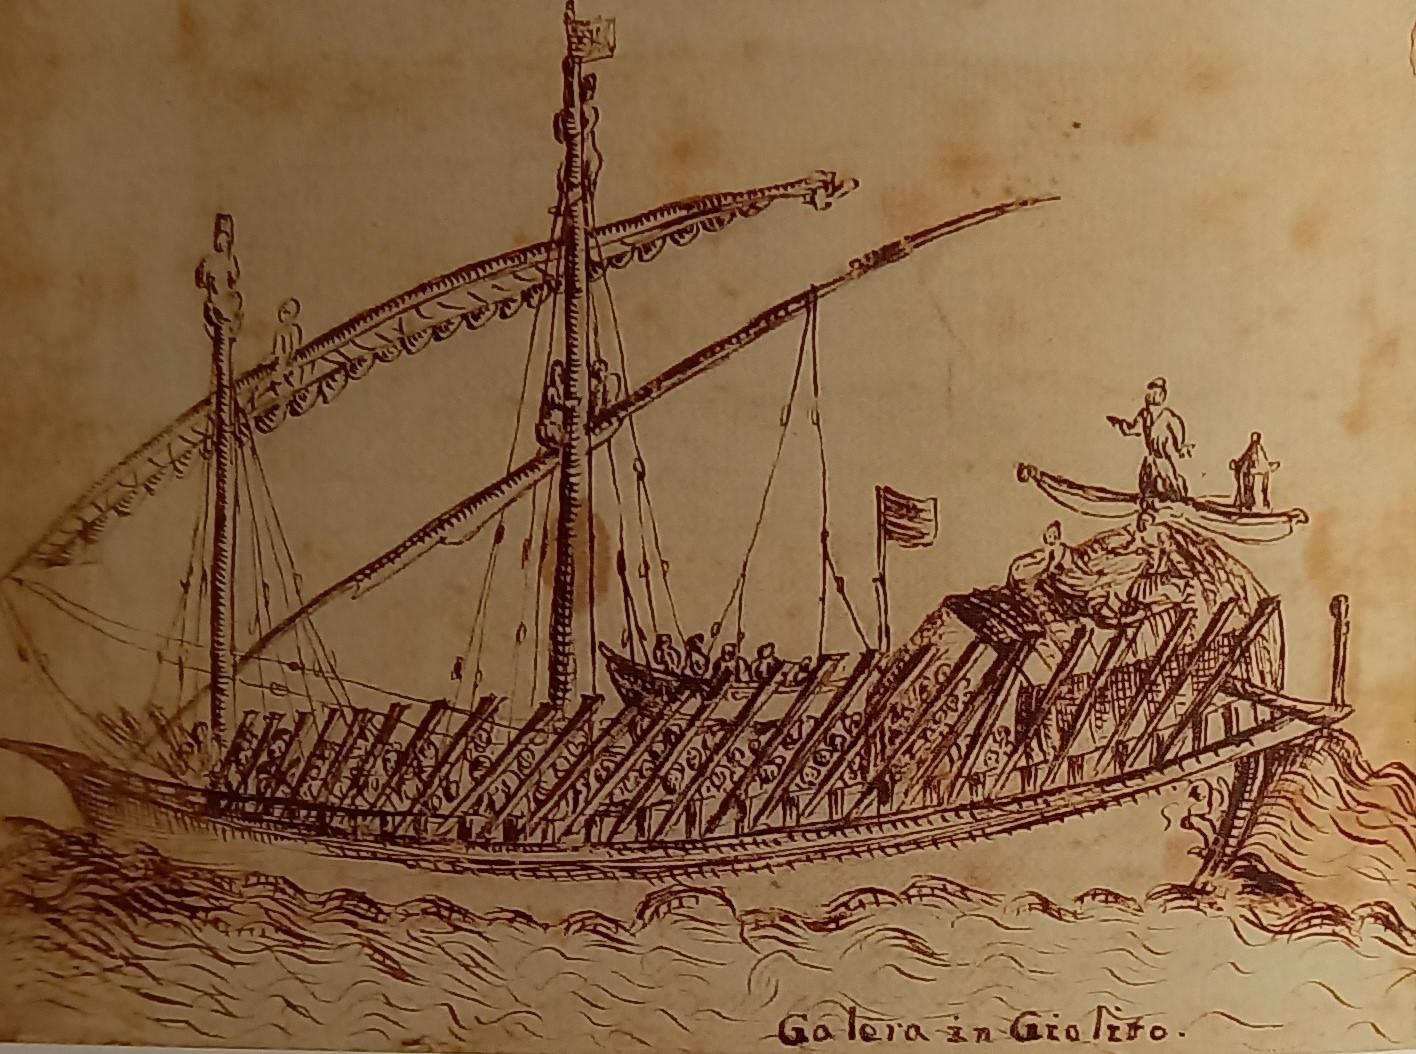 Galera in Giolito.